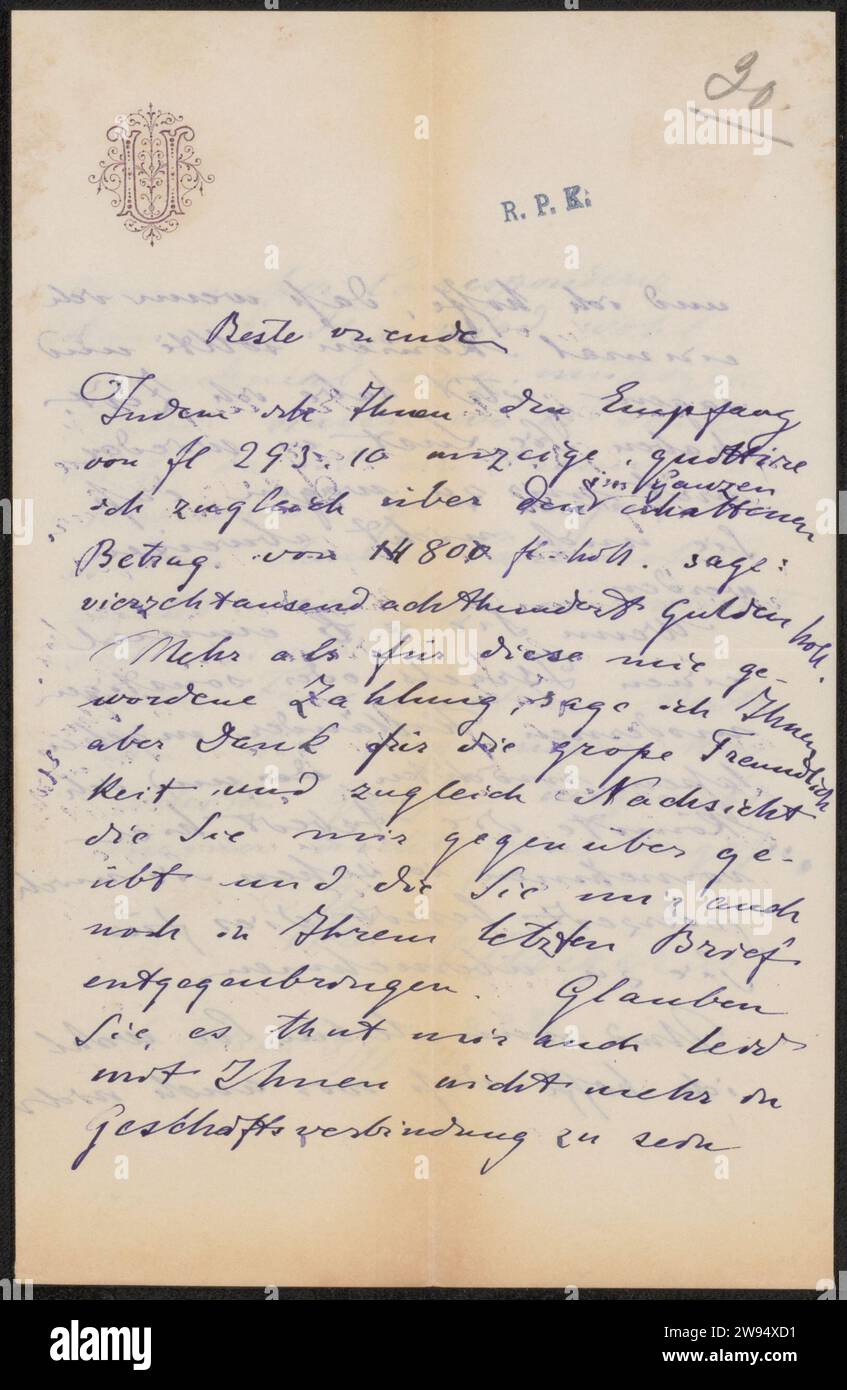 30.
U
R. P. K.
Beste vrienden
Indem ich Ihnen den Empfang
von fl 293.10 anzeige, quittire
ich zugleich über den im Ganzen erhaltenen
Betrag von 14800 fl. holl. sage:
vierzehtausend achthundert Gulden holl.
Mehr als für diese mir ge-
wordene Zahlung, sage ich Ihnen
aber Dank für die große Freundlich
keit und zugleich Nachsicht
die Sie mir gegenüber ge-
übt und die Sie mir auch
noch in Ihrem letzten Brief
entgegenbringen. Glauben
Sie, es thut mir auch leid
mit Ihnen nicht mehr in
Geschäftsverbindung zu sein
alamy
Image ID: 2W94XD1
www.alamy.com